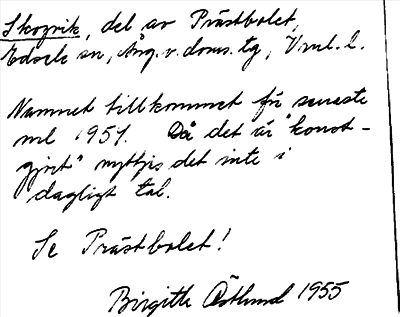 Skogvik, del av Prästbolet,
Edsele sn, Ång. v. doms. tg, Vnl. l.
Namnet tillkommet få senaste
ml 1951. Då det är "konst-
gjort" nyttjis det inte i
dagligt tal.
Se Prästbolet!
Birgitta Östlund 1955